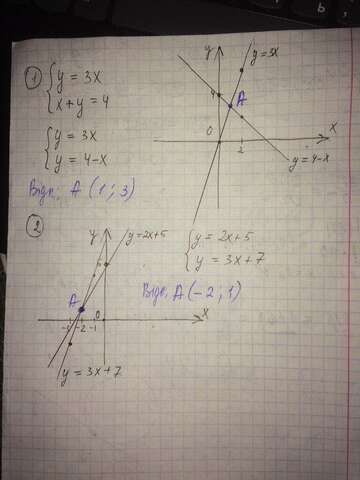 1 { y = 3x
x + y = 4
{ y = 3x
y = 4-x
Відп: A (1 ; 3)
y
y = 3x
4
A
0
2
x
y = 4-x
2
y
y = 2x+5
{ y = 2x+5
y = 3x + 7
A
Відп: A (-2 ; 1)
-2 -1
0
x
y = 3x + 7